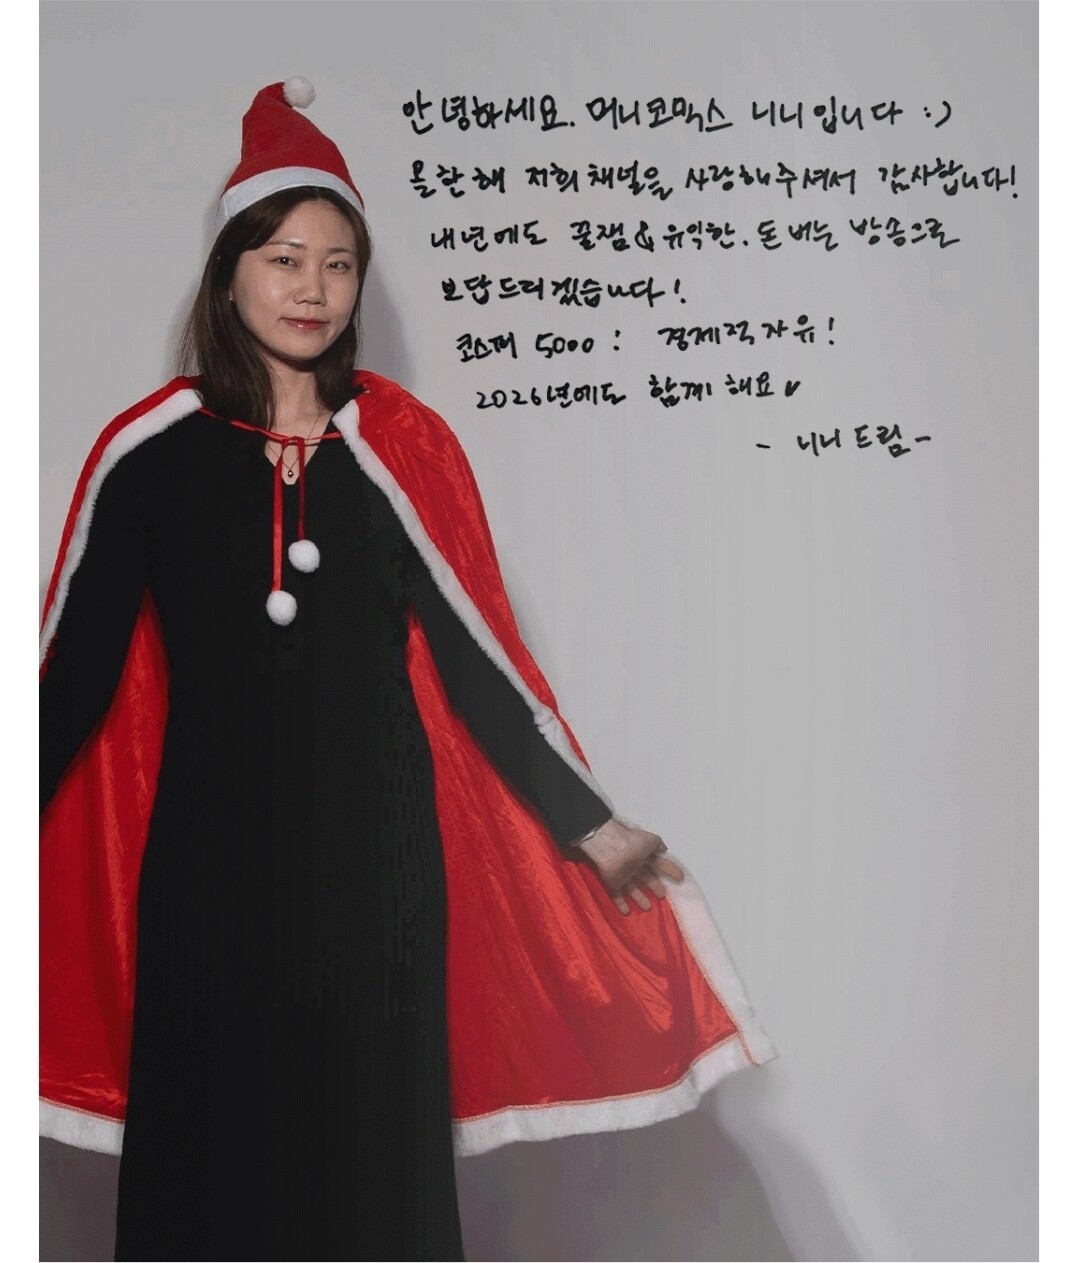 안녕하세요. 머니코믹스 니니입니다 :)
올한해 저희 채널을 사랑해주셔서 감사합니다!
내년에도 꿀잼 & 유익한. 돈 버는 방송으로
보답드리겠습니다!
코스피 5000! 경제적 자유!
2026년에도 함께 해요♥
- 니니 드림 -